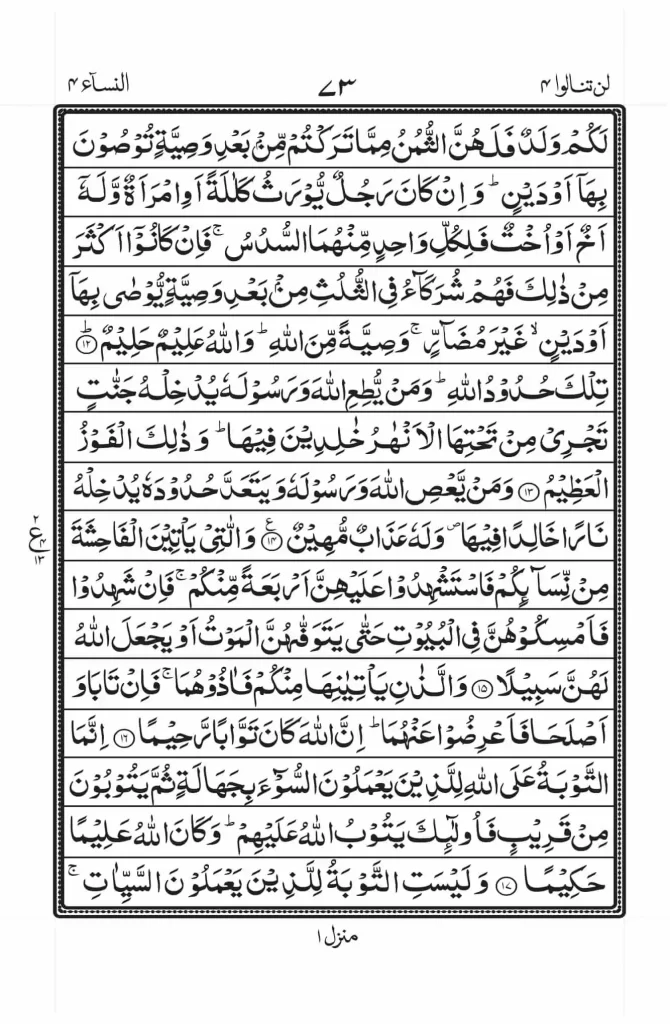 لن تنالوا ۴ ۷۳ النسآء ۴
لَكُمۡ وَلَدٌ فَلَهُنَّ الثُّمُنُ مِمَّا تَرَكۡتُمۡ مِّنۡۢ بَعۡدِ وَصِيَّةٍ تُوۡصُوۡنَ
بِهَاۤ اَوۡ دَيۡنٍ ؕ وَ اِنۡ كَانَ رَجُلٌ يُّوۡرَثُ كَلٰلَةً اَوِ امۡرَاَةٌ وَّلَهٗۤ
اَخٌ اَوۡ اُخۡتٌ فَلِكُلِّ وَاحِدٍ مِّنۡهُمَا السُّدُسُ ۚ فَاِنۡ كَانُوۡۤا اَكۡثَرَ
مِنۡ ذٰلِكَ فَهُمۡ شُرَكَآءُ فِى الثُّلُثِ مِنۡۢ بَعۡدِ وَصِيَّةٍ يُّوۡصٰى بِهَاۤ
اَوۡ دَيۡنٍ ۙ غَيۡرَ مُضَآرٍّ ۚ وَصِيَّةً مِّنَ اللّٰهِ ؕ وَ اللّٰهُ عَلِيۡمٌ حَلِيۡمٌ ؕ ﴿۱۲﴾
تِلۡكَ حُدُوۡدُ اللّٰهِ ؕ وَمَنۡ يُّطِعِ اللّٰهَ وَرَسُوۡلَهٗ يُدۡخِلۡهُ جَنّٰتٍ
تَجۡرِىۡ مِنۡ تَحۡتِهَا الۡاَنۡهٰرُ خٰلِدِيۡنَ فِيۡهَا ؕ وَ ذٰلِكَ الۡفَوۡزُ
الۡعَظِيۡمُ ﴿۱۳﴾ وَمَنۡ يَّعۡصِ اللّٰهَ وَرَسُوۡلَهٗ وَيَتَعَدَّ حُدُوۡدَهٗ يُدۡخِلۡهُ
نَارًا خَالِدًا فِيۡهَا ۖ وَلَهٗ عَذَابٌ مُّهِيۡنٌ ﴿۱۴﴾ ع وَالّٰتِىۡ يَاۡتِيۡنَ الۡفَاحِشَةَ
۲ ع ۴ ۱۳
مِنۡ نِّسَآئِكُمۡ فَاسۡتَشۡهِدُوۡا عَلَيۡهِنَّ اَرۡبَعَةً مِّنۡكُمۡ ۚ فَاِنۡ شَهِدُوۡا
فَاَمۡسِكُوۡهُنَّ فِى الۡبُيُوۡتِ حَتّٰى يَتَوَفّٰهُنَّ الۡمَوۡتُ اَوۡ يَجۡعَلَ اللّٰهُ
لَهُنَّ سَبِيۡلًا ﴿۱۵﴾ وَالَّذٰنِ يَاۡتِيٰنِهَا مِنۡكُمۡ فَاٰذُوۡهُمَا ۚ فَاِنۡ تَابَا وَ
اَصۡلَحَا فَاَعۡرِضُوۡا عَنۡهُمَا ؕ اِنَّ اللّٰهَ كَانَ تَوَّابًا رَّحِيۡمًا ﴿۱۶﴾ اِنَّمَا
التَّوۡبَةُ عَلَى اللّٰهِ لِلَّذِيۡنَ يَعۡمَلُوۡنَ السُّوۡٓءَ بِجَهَالَةٍ ثُمَّ يَتُوۡبُوۡنَ
مِنۡ قَرِيۡبٍ فَاُولٰٓئِكَ يَتُوۡبُ اللّٰهُ عَلَيۡهِمۡ ؕ وَكَانَ اللّٰهُ عَلِيۡمًا
حَكِيۡمًا ﴿۱۷﴾ وَ لَيۡسَتِ التَّوۡبَةُ لِلَّذِيۡنَ يَعۡمَلُوۡنَ السَّيِّاٰتِ ۚ
منزل ۱